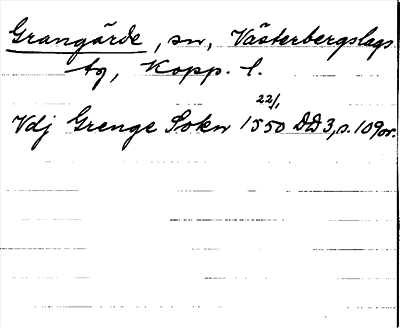 Grangärde, sn, Västerbergslags
tg, Kopp. l.
22/1
Vdj Grenge Sokn 1550 DD 3, s. 109 v.